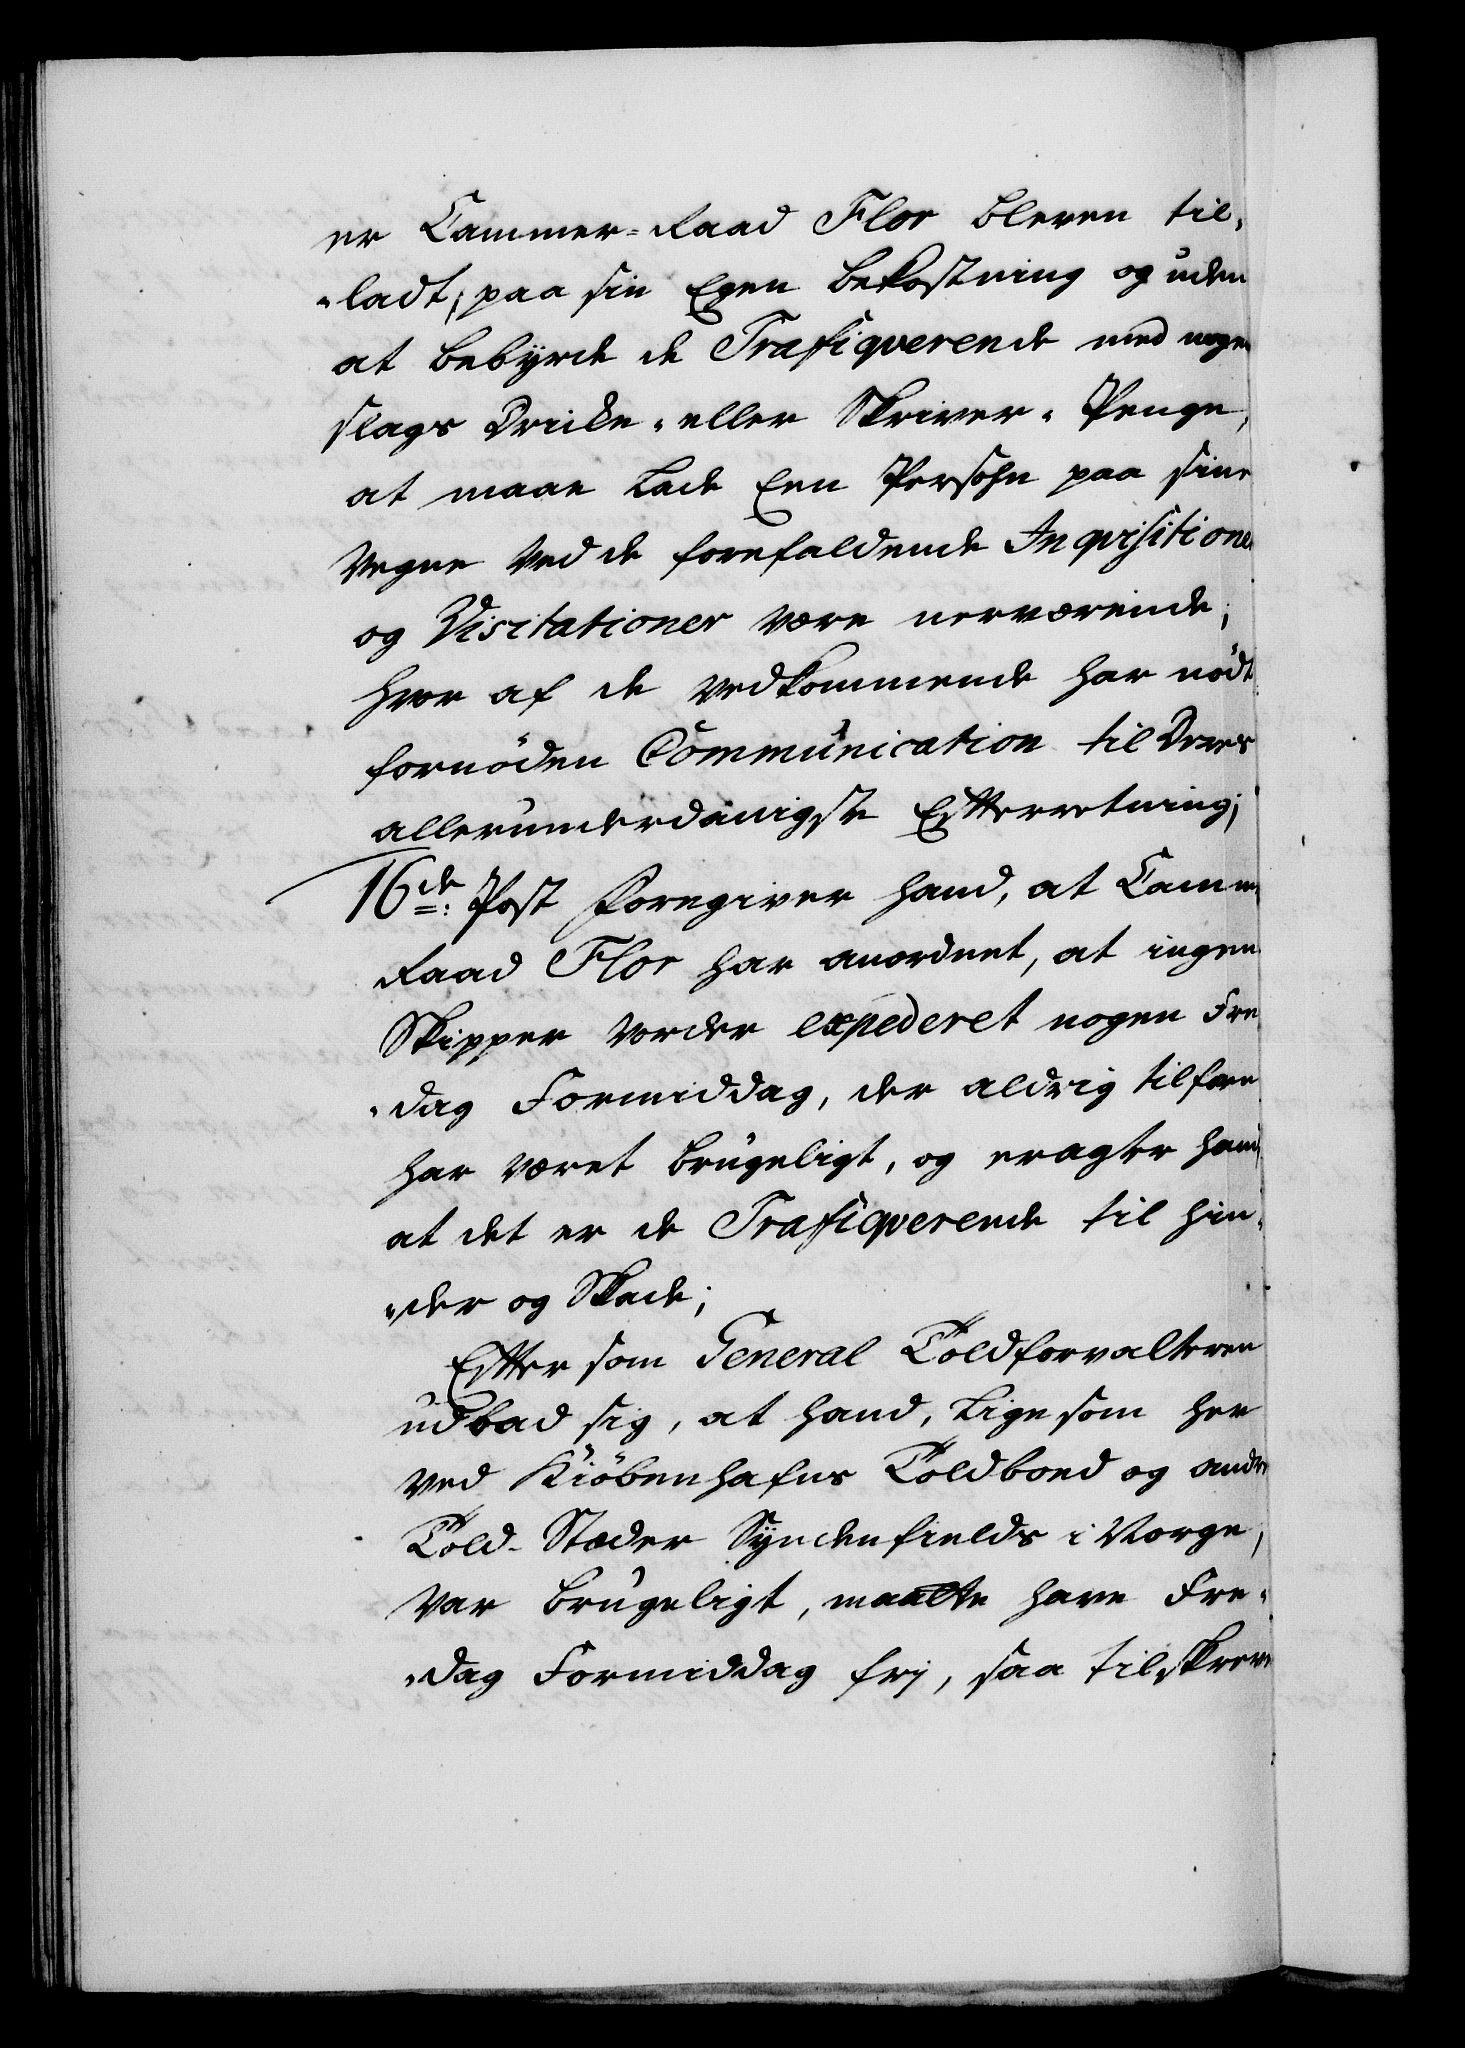 er Cammer-Raad Flor bleven til„
„ladt, paa sin Egen bekostning og uden
at bebyrde de Trafiqverende med nogen
slags Dricke- eller Skriver-Penge,
at maae lade Een Persohn paa sine
Vegne ved de forefaldende Inqvisitioner
og Visitationer være nerværende;
hvor af de vedkommende har nödt
fornöden Communication til Deres
allerunderdanigste Efterretning;
16de: Post foregiver hand, at Cammer
Raad Flor har anordnet, at ingen
Skipper vorder expederet nogen Fre
„dag Formiddag, der aldrig tilforn
har været brugeligt, og eragter hand,
at det er de Trafiqverende til hin„
„der og Skade;
Efter som General Toldforvalteren
udbad sig, at hand, ligesom her
ved Kiöbenhafns Toldboed og andre
Told-Stæder Syndenfields i Norge,
var brugeligt, maatte have Fre„
„dag Formiddag frj, saa tilskrev